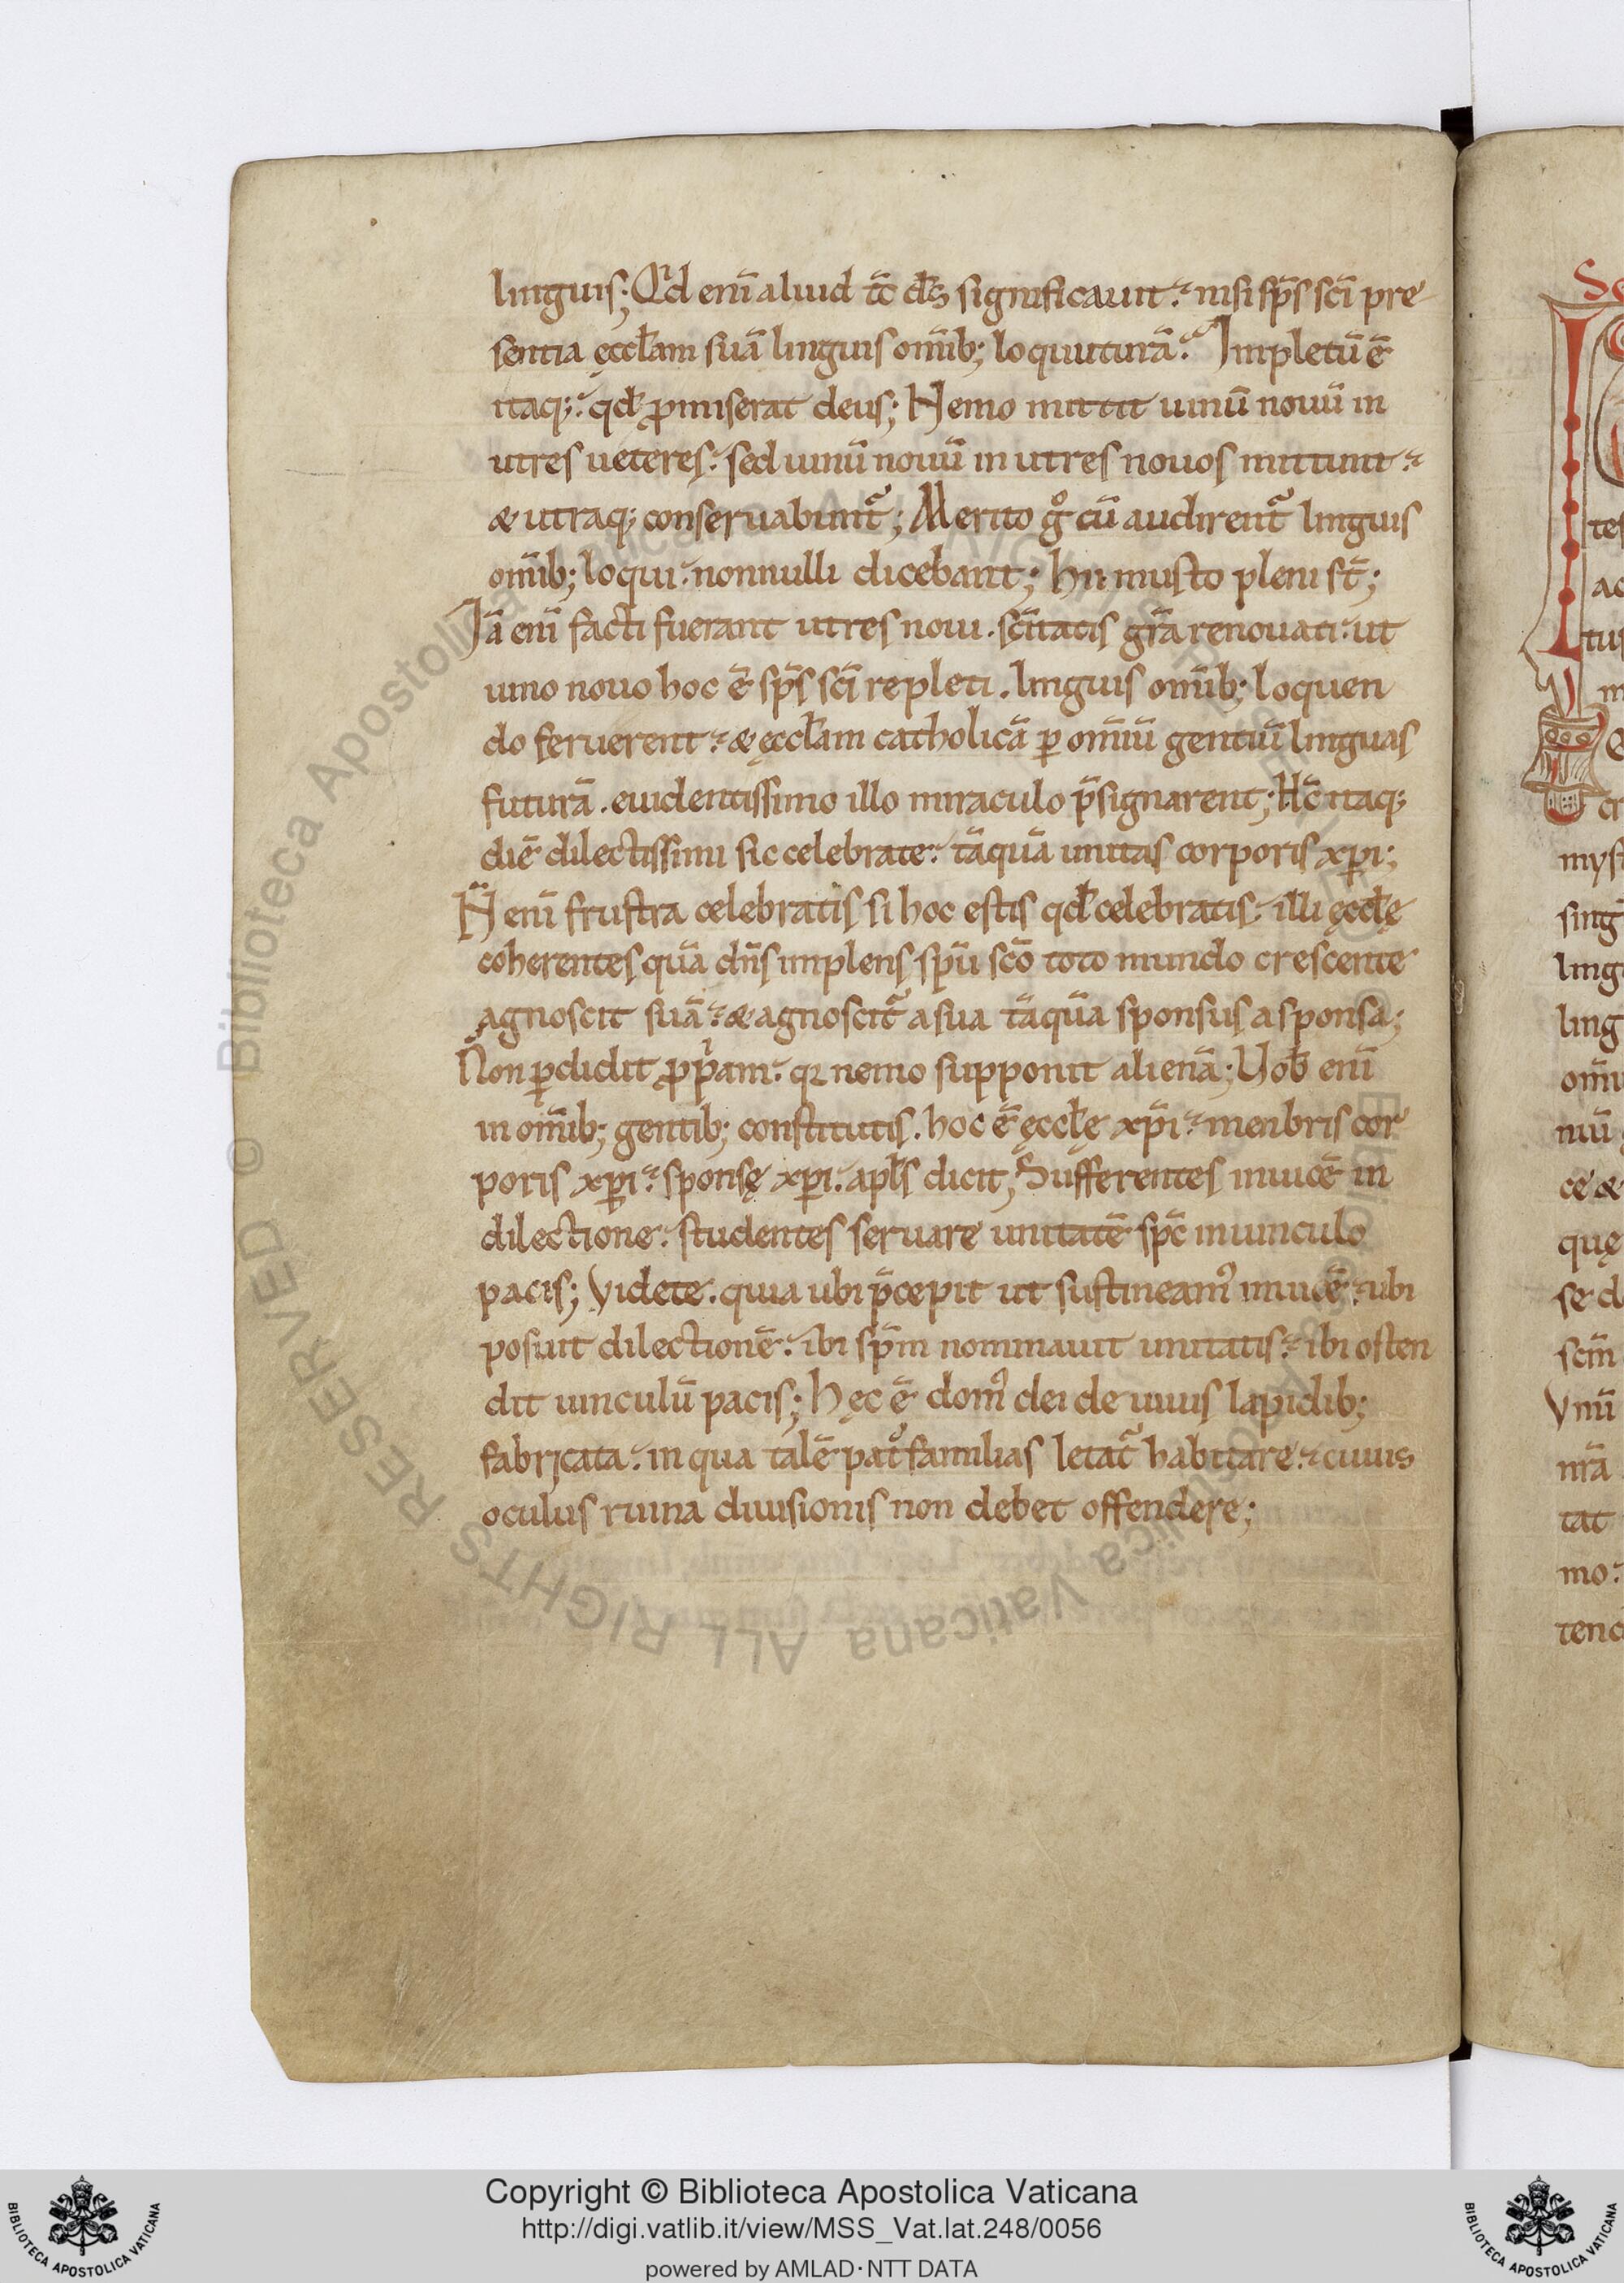 linguis; Qͥd eni̅ aliud tc̅ ds̅ significauit. nisi sp̅s sc̅i pre
sentia ęccl̅am suā linguis om̅ib; loquiturā. Impletū ē
itaq;. qđ ꝓmiserat deus; Nemo mittit uinū nouū in
utres ueteres. sed uinū nouū in utres nouos mittunt.
& utraq; conseruabunt᷑; Merito gͦ cū audirent᷑ linguis
om̅ib; loqui. nonnulli dicebant; hii musto pleni st̅;
Iā eni̅ facti fuerant utres noui. sc̅itatis gr̅a renouati. ut
uino nouo hoc ē sp̅s sc̅i repleti. linguis om̅ib; loquen
do feruerent. & ęccl̅am catholicā ꝑ om̅iū gentiū linguas
futurā. euidentissimo illo miraculo p̅signarent; Hc̅ itaq;
diē dilectissimi sic celebrate. tāquā unitas corporis xp̅i;
N̅ eni̅ frustra celebratis si hoc estis qđ celebratis. illi ęccl̅ę
coherentes quā dn̅s implens sp̅u sc̅o toto mundo crescente
agnoscit suā. & agnoscit᷑ a sua tāquā sponsus a sponsa;
Non ꝑdidit ꝓpͥam. qꝛ nemo supponit alienā; Uob̅ eni̅
in om̅ib; gentib; constitutis. hoc ē ęccl̅ę xp̅i. menbris cor
poris xp̅i. sponsę xp̅i. apl̅s dicit; Sufferentes inuicē in
dilectione. studentes seruare unitatē sp̅c in uinculo
pacis; Videte. quia ubi p̅cepit ut sustineam᷒ inuicē. ubi
posuit dilectionē. ibi sp̅m nominauit unitatis. ibi osten
dit uinculū pacis; Hęc ē dom᷒ dei de uiuis lapidib;
fabricata. in qua talē pat᷑familias letat᷑ habitare. cuius
oculus ruina diuisionis non debet offendere;
tes
ac
tus
cr
myst
sing
ling
ling
om̅i
niū
ce &
quę
se d
sc̅m
Vnū
nr̅a
tat
mo.
tenc
© Biblioteca Apostolica Vaticana ALL RIGHTS RESERVED
Copyright © Biblioteca Apostolica Vaticana
http://digi.vatlib.it/view/MSS_Vat.lat.248/0056
powered by AMLAD·NTT DATA
BIBLIOTECA APOSTOLICA VATICANA
BIBLIOTECA APOSTOLICA VATICANA